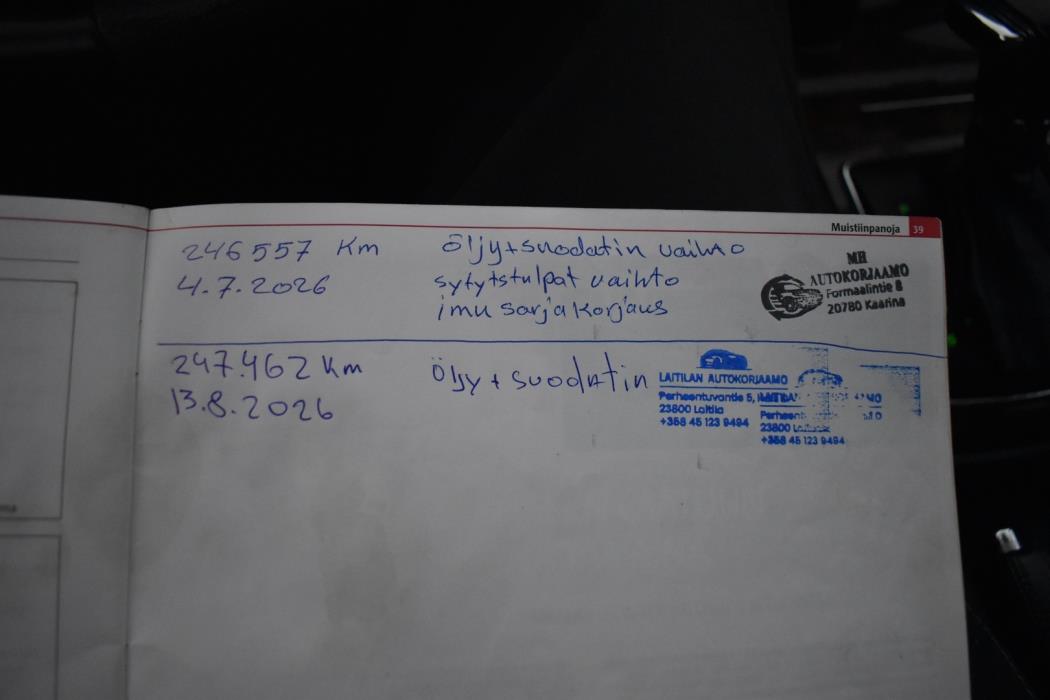 Muistiinpanoja 39
246557 Km öljy+suodatin vaihto
4.7.2026 sytytstulpat vaihto
imu sarja korjaus
MH
AUTOKORJAAMO
Formaalintie 8
20780 Kaarina
247.462 Km öljy + suodatin
13.8.2026
LAITILAN AUTOKORJAAMO
Perheentuvantie 5,
23800 Laitila
+358 45 123 9494
23800
+358 45 123 9494